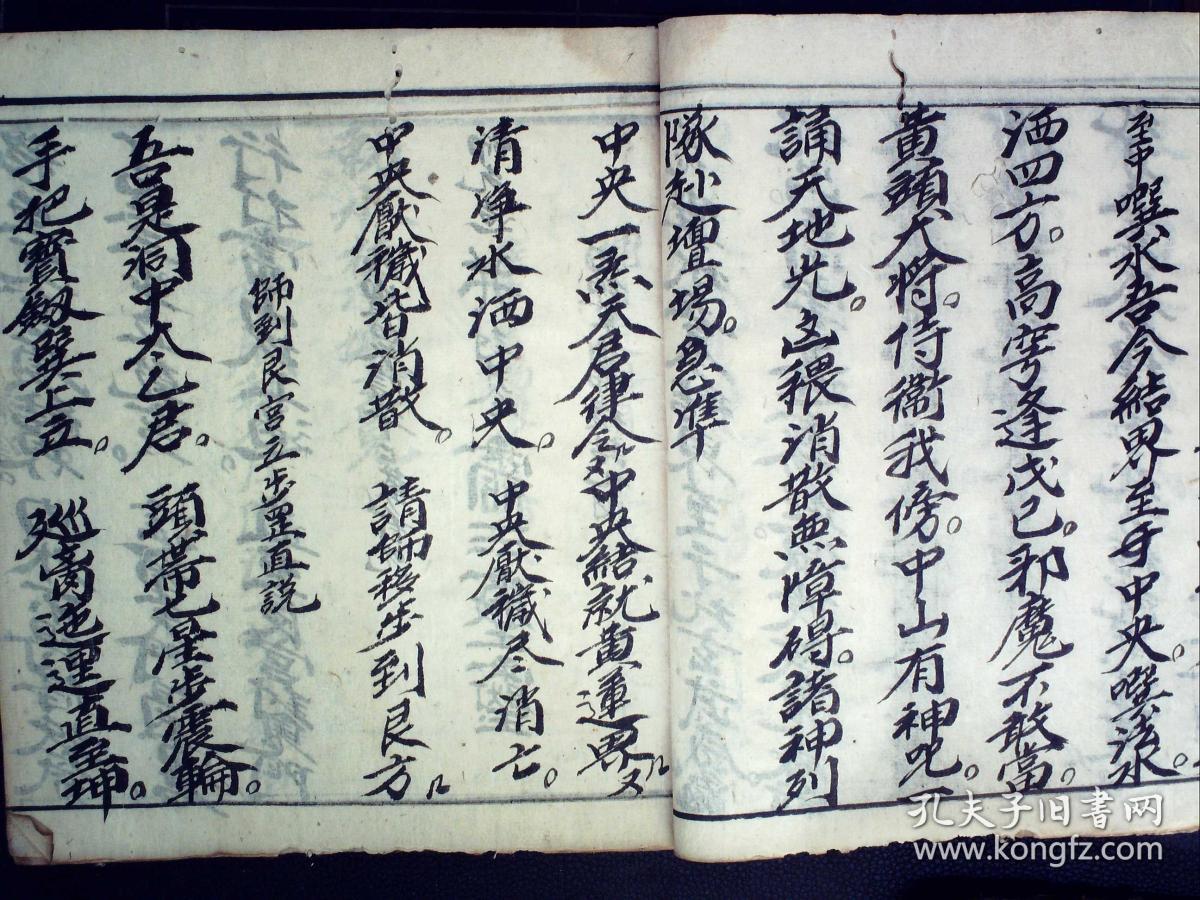 至中噀水吾今結界至于中央。噀法水。
洒四方。高穹逢戊己。邪魔不敢當。
黃頭大將。侍衛我傍。中山有神咒。
誦天地光。凶穢消散無障碍。諸神列
隊赴壇場。急準
中央一炁天君律令 中央結就黃蓮界又
清淨水洒中央。中央厭穢尽消亡。
中央厭穢皆消散。請師移步到艮方
師到艮宮立步罡直説
吾是洞中太乙君。頭帶七星步震輪。
手把寶劔巽上立。巡离迆逦直至坤。
孔夫子旧书网
www.kongfz.com